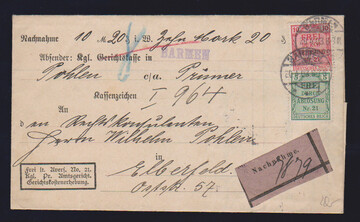 Nachnahme 10 M 20 ₰ i. W. Zehn Mark 20
Absender: Kgl. Gerichtskasse in
BARMEN
Pohlen c/a. Prumer
Kassenzeichen
I 964
An
den Rechtskonsulenten
Herrn Wilhelm Pohlein
Elberfeld.
Oststr. 57.
Frei lt. Avers. No. 21.
Kgl. Pr. Amtsgericht.
Gerichtskostenerhebung.
FREI
DURCH
ABLÖSUNG
Nr. 21
Nachnahme.
7879